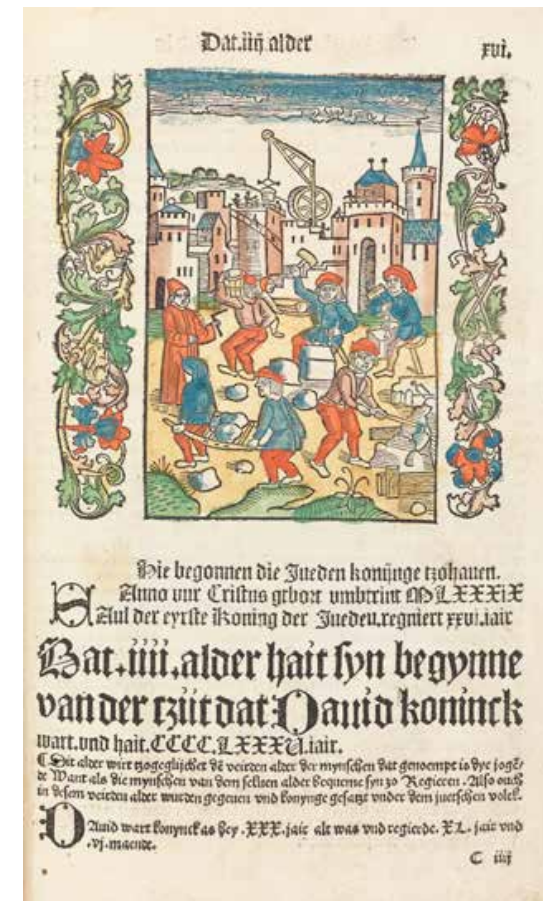 Dat.iiij alder
xvi.
Hie begonnen die Jueden konijnge tzohauen.
Anno vur Cristus gebort vmbtrint MLXXXIX
SAul der eyrste Koning der Jueden.regniert xxvi.iair
Dat.iiii.alder hait syn begynne
van der tzijt dat Dauid koninck
wart.vnd hait.CCCC.LXXXV.iair.
Dit alder wirt tzogeglijchet dē veirden alder der mynschen dat genoempt is dye jogē/
de Want als die mynschen van dem seluen alder bequeme syn zo Regieren. Also ouch
in desem veirden alder wurden gegeuen vnd konynge gesatz vnder dem juetschen volck.
DAuid wart konynck as hey .XXX.jair alt was vnd regierde. XL. jair vnd
.vj.maende.
C iiij